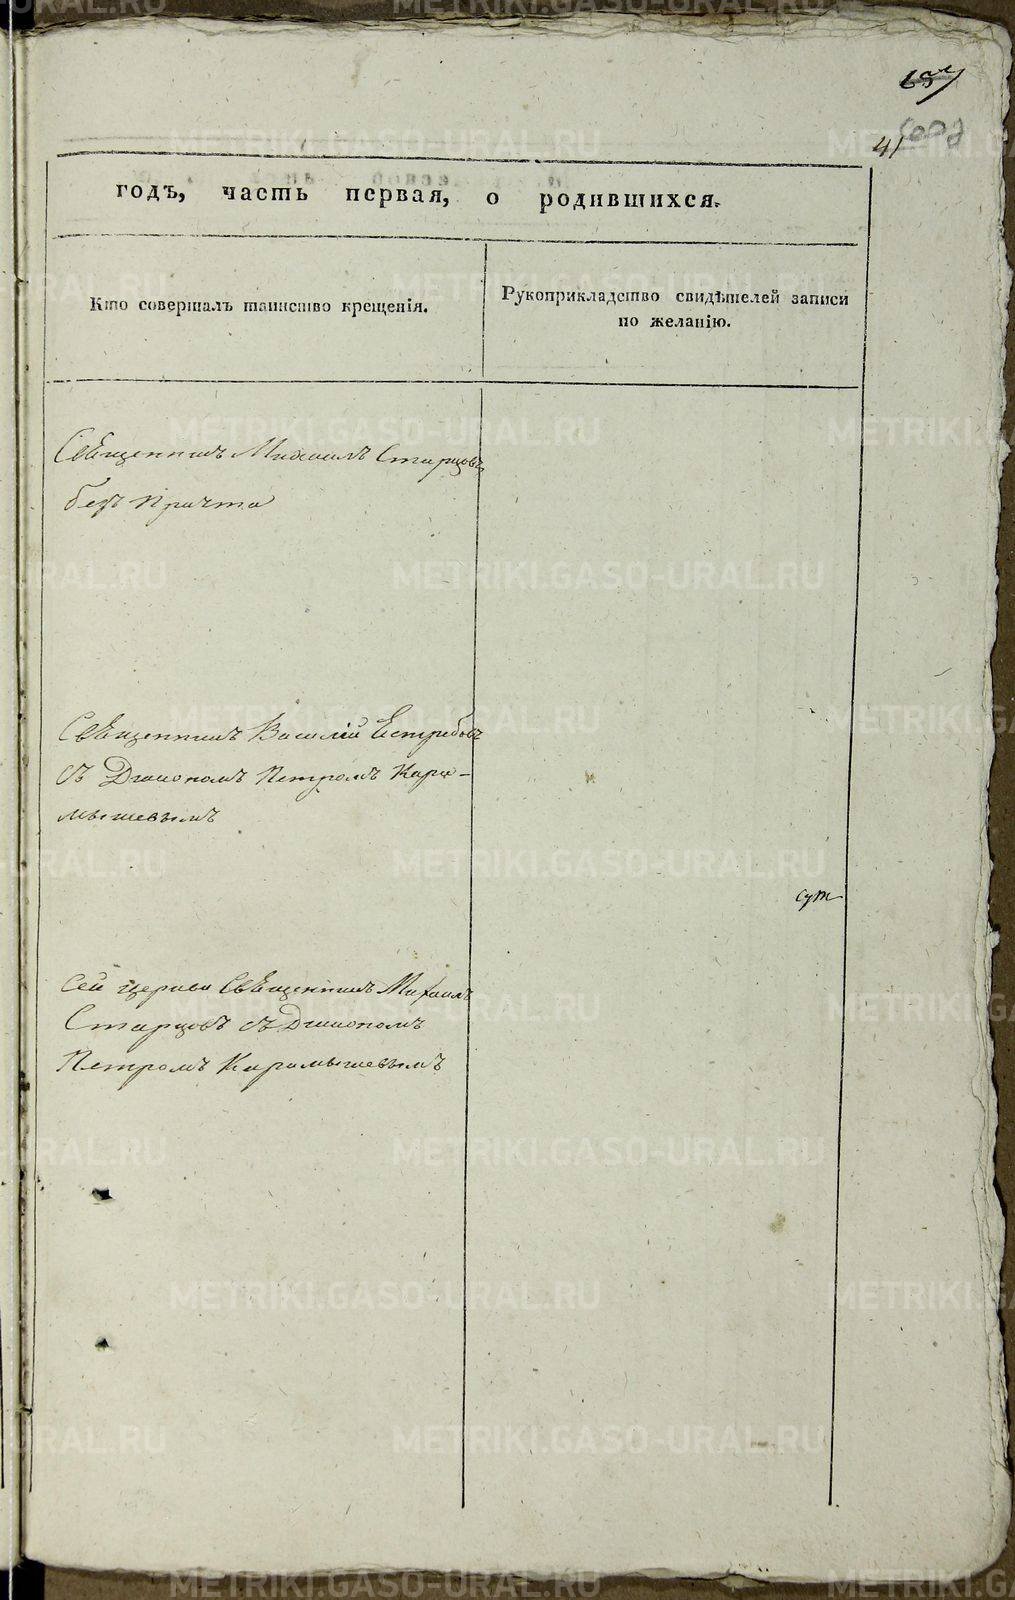 41
годъ, часть первая, о родившихся.
Кто совершалъ таинство крещенія.
Рукоприкладство свидѣтелей записи
по желанію.
Священникъ Михаилъ Старцовъ
безъ причта
Священникъ Василій Ястребовъ
съ Діакономъ Петромъ Кара-
мышевымъ
Сей церкви Священникъ Михаилъ
Старцовъ съ Діакономъ
Петромъ Карамышевымъ
METRIKI.GASO-URAL.RU